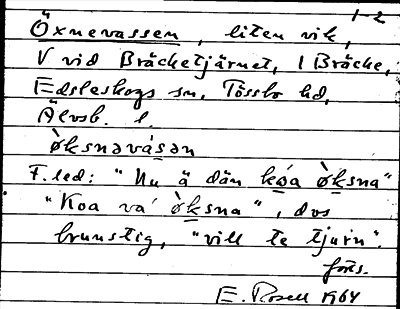 1-2
Öxnevassen, liten vik,
V vid Bräcketjärnet, 1 Bräcke,
Edsleskogs sn, Tössbo hd,
Älvsb. l.
ò̀ksnəvásən
F. led: "Nu ä dän kóa ò̀ksna"
"Koa va' ò̀ksna", dvs
brunstig, "vill te tjurn".
förs.
E. Rosell 1964